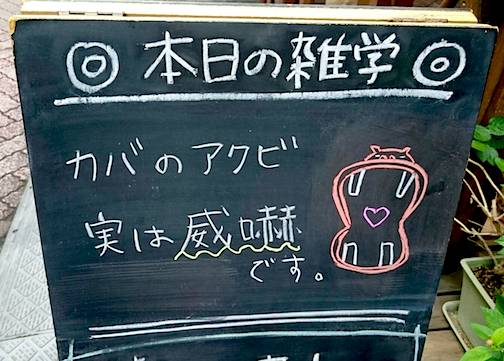 ◎ 本日の雑学 ◎
カバのアクビ
実は威嚇
です。